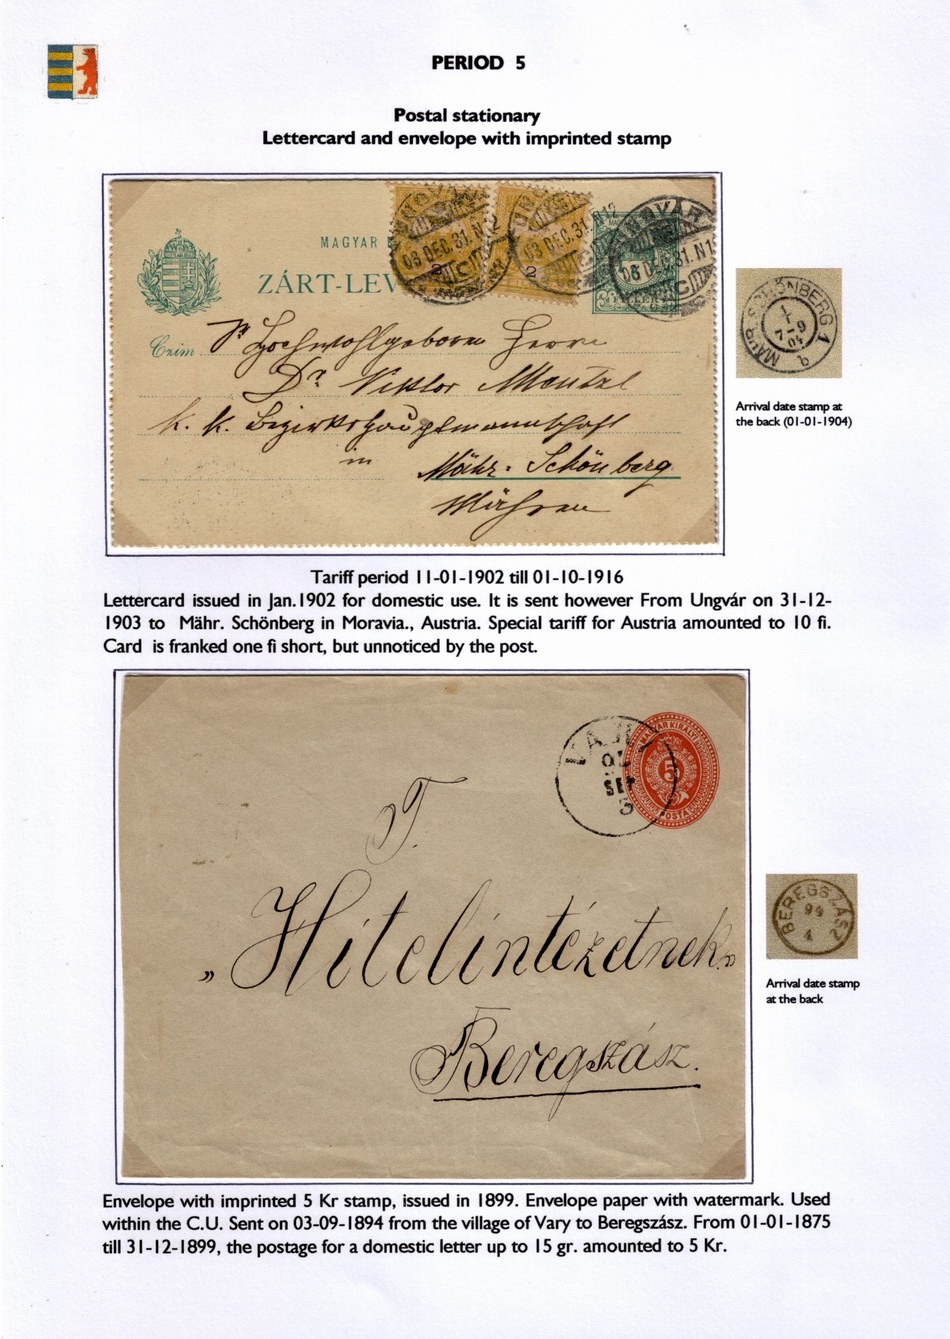 PERIOD 5
Postal stationary
Lettercard and envelope with imprinted stamp
MAGYAR
ZÁRT-LEV
2
2
UNGVÁR
03 DEC. 31. N12
03 DEC. 31. N12
UNGVÁR
03 DEC. 31. N1
Czim
Hochwohlgeboren Herrn
Dr Viktor
k. k. Bezirkshauptmannschaft
in Mähr. Schönberg
Mähren
MÄHR. SCHÖNBERG 1
1
I
7-9
04
b
Arrival date stamp at
the back (01-01-1904)
Tariff period 11-01-1902 till 01-10-1916
Lettercard issued in Jan.1902 for domestic use. It is sent however From Ungvár on 31-12-
1903 to Mähr. Schönberg in Moravia., Austria. Special tariff for Austria amounted to 10 fi.
Card is franked one fi short, but unnoticed by the post.
MAGYAR KIRÁLYI
5
POSTA
VARY
SEP
3
T.
„Hitelintézetnek”
Beregszász.
BEREGSZÁSZ
94
4
Arrival date stamp
at the back
Envelope with imprinted 5 Kr stamp, issued in 1899. Envelope paper with watermark. Used
within the C.U. Sent on 03-09-1894 from the village of Vary to Beregszász. From 01-01-1875
till 31-12-1899, the postage for a domestic letter up to 15 gr. amounted to 5 Kr.